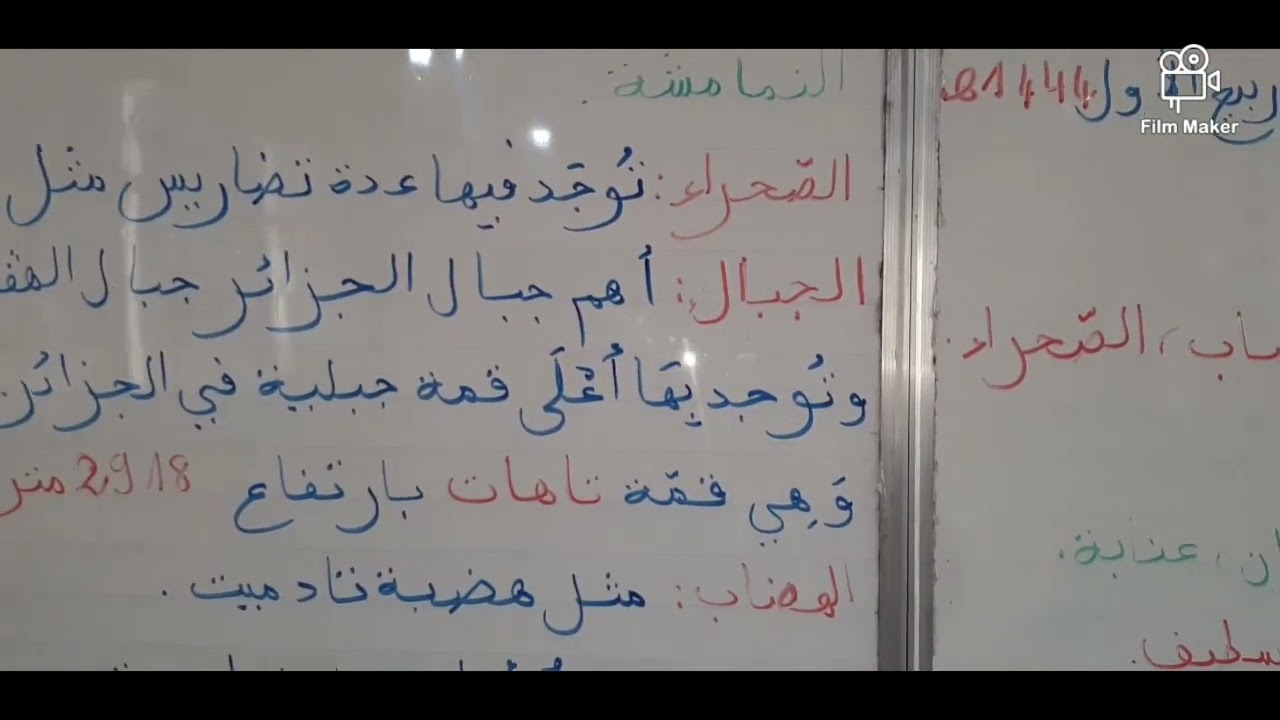 ربيع الأول 1444هـ
الصّحراء.
عنابة.
سطيف.
النمامشة.
الصّحراء: تُوجَد فيها عدة تضاريس مثل
الجبال: أهم جبال الجزائر جبال الهڤ
وتُوجد بِهَا أُعْلَى قمة جبلية في الجزائر
وَهِي قمّة تاهات بارتفاع 2918 متر
الهضاب: مثل هضبة تادميت.
Film Maker